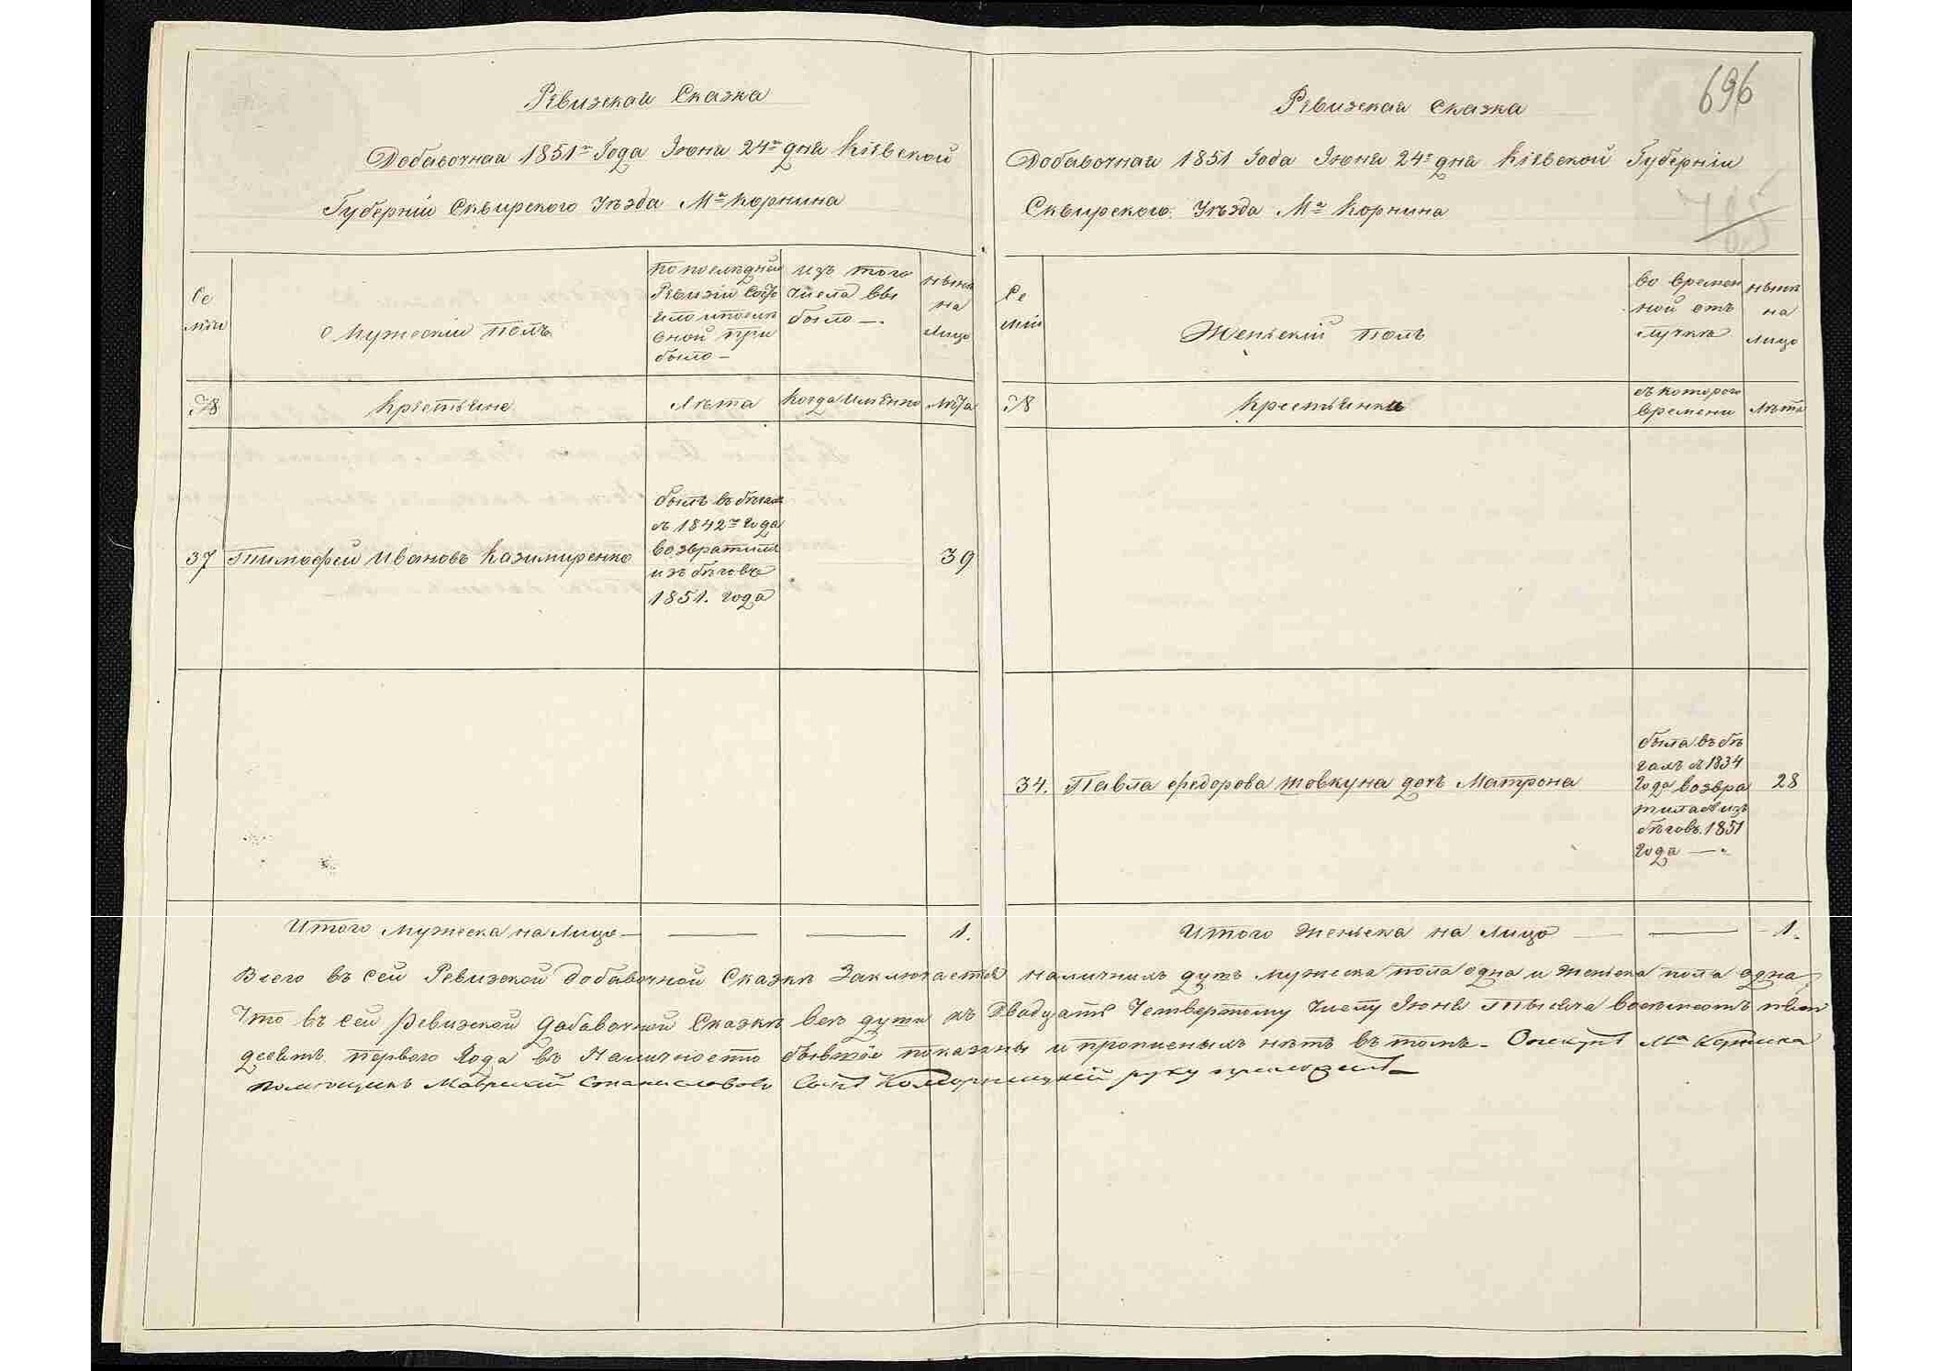 696
Ревизская Сказка
Добавочная 1851го Года Іюня 24го дня Кіевской
Губерніи Сквирскаго Уѣзда Мка Корнина
Се
мьи
Мужескій полъ
По последней
Ревизіи состо
яло и после
оной при
было —
изъ того
числа вы
было —.
нынѣ
на
Лицо
№
Крестьяне
Лѣта
Когда именно
Лѣта
37 Тимофей Ивановъ Казимиренко
былъ въ бегахъ
съ 1842го года
возвратился
изъ бѣговъ
1851. года
39
Итого Мужеска на Лицо — — — 1.
Ревизская Сказка
Добавочная 1851 Года Іюня 24го дня Кіевской Губерніи
Сквирскаго Уѣзда Мка Корнина
Се
мьи
Женьскій полъ
Во времен
ной отъ
лучкѣ
нынѣ
на
лицо
№
Крестьянки
съ котораго
времени
Лѣта
34. Павла Федорова Товкуна дочь Матрона
была въ бѣ
гахъ съ 1834
Года возвра
тилась изъ
бѣговъ 1851
Года —.
28
Итого Женьска на Лицо — — 1.
Всего въ сей Ревизской добавочной Сказкѣ Заключается наличныхъ душъ мужеска пола одна и женьска пола одна,
Что въ сей Ревизской добавочной Сказкѣ всѣ души къ Двадцать Четвертому Числу Іюня тысяча восемьсотъ пять
десятъ перваго Года въ Наличности бывшіе показаны и прописныхъ нѣтъ въ томъ - Опекунъ Мка Корнина
помещикъ Маврикій Станиславовъ Сынъ Коморницкій руку приложилъ —